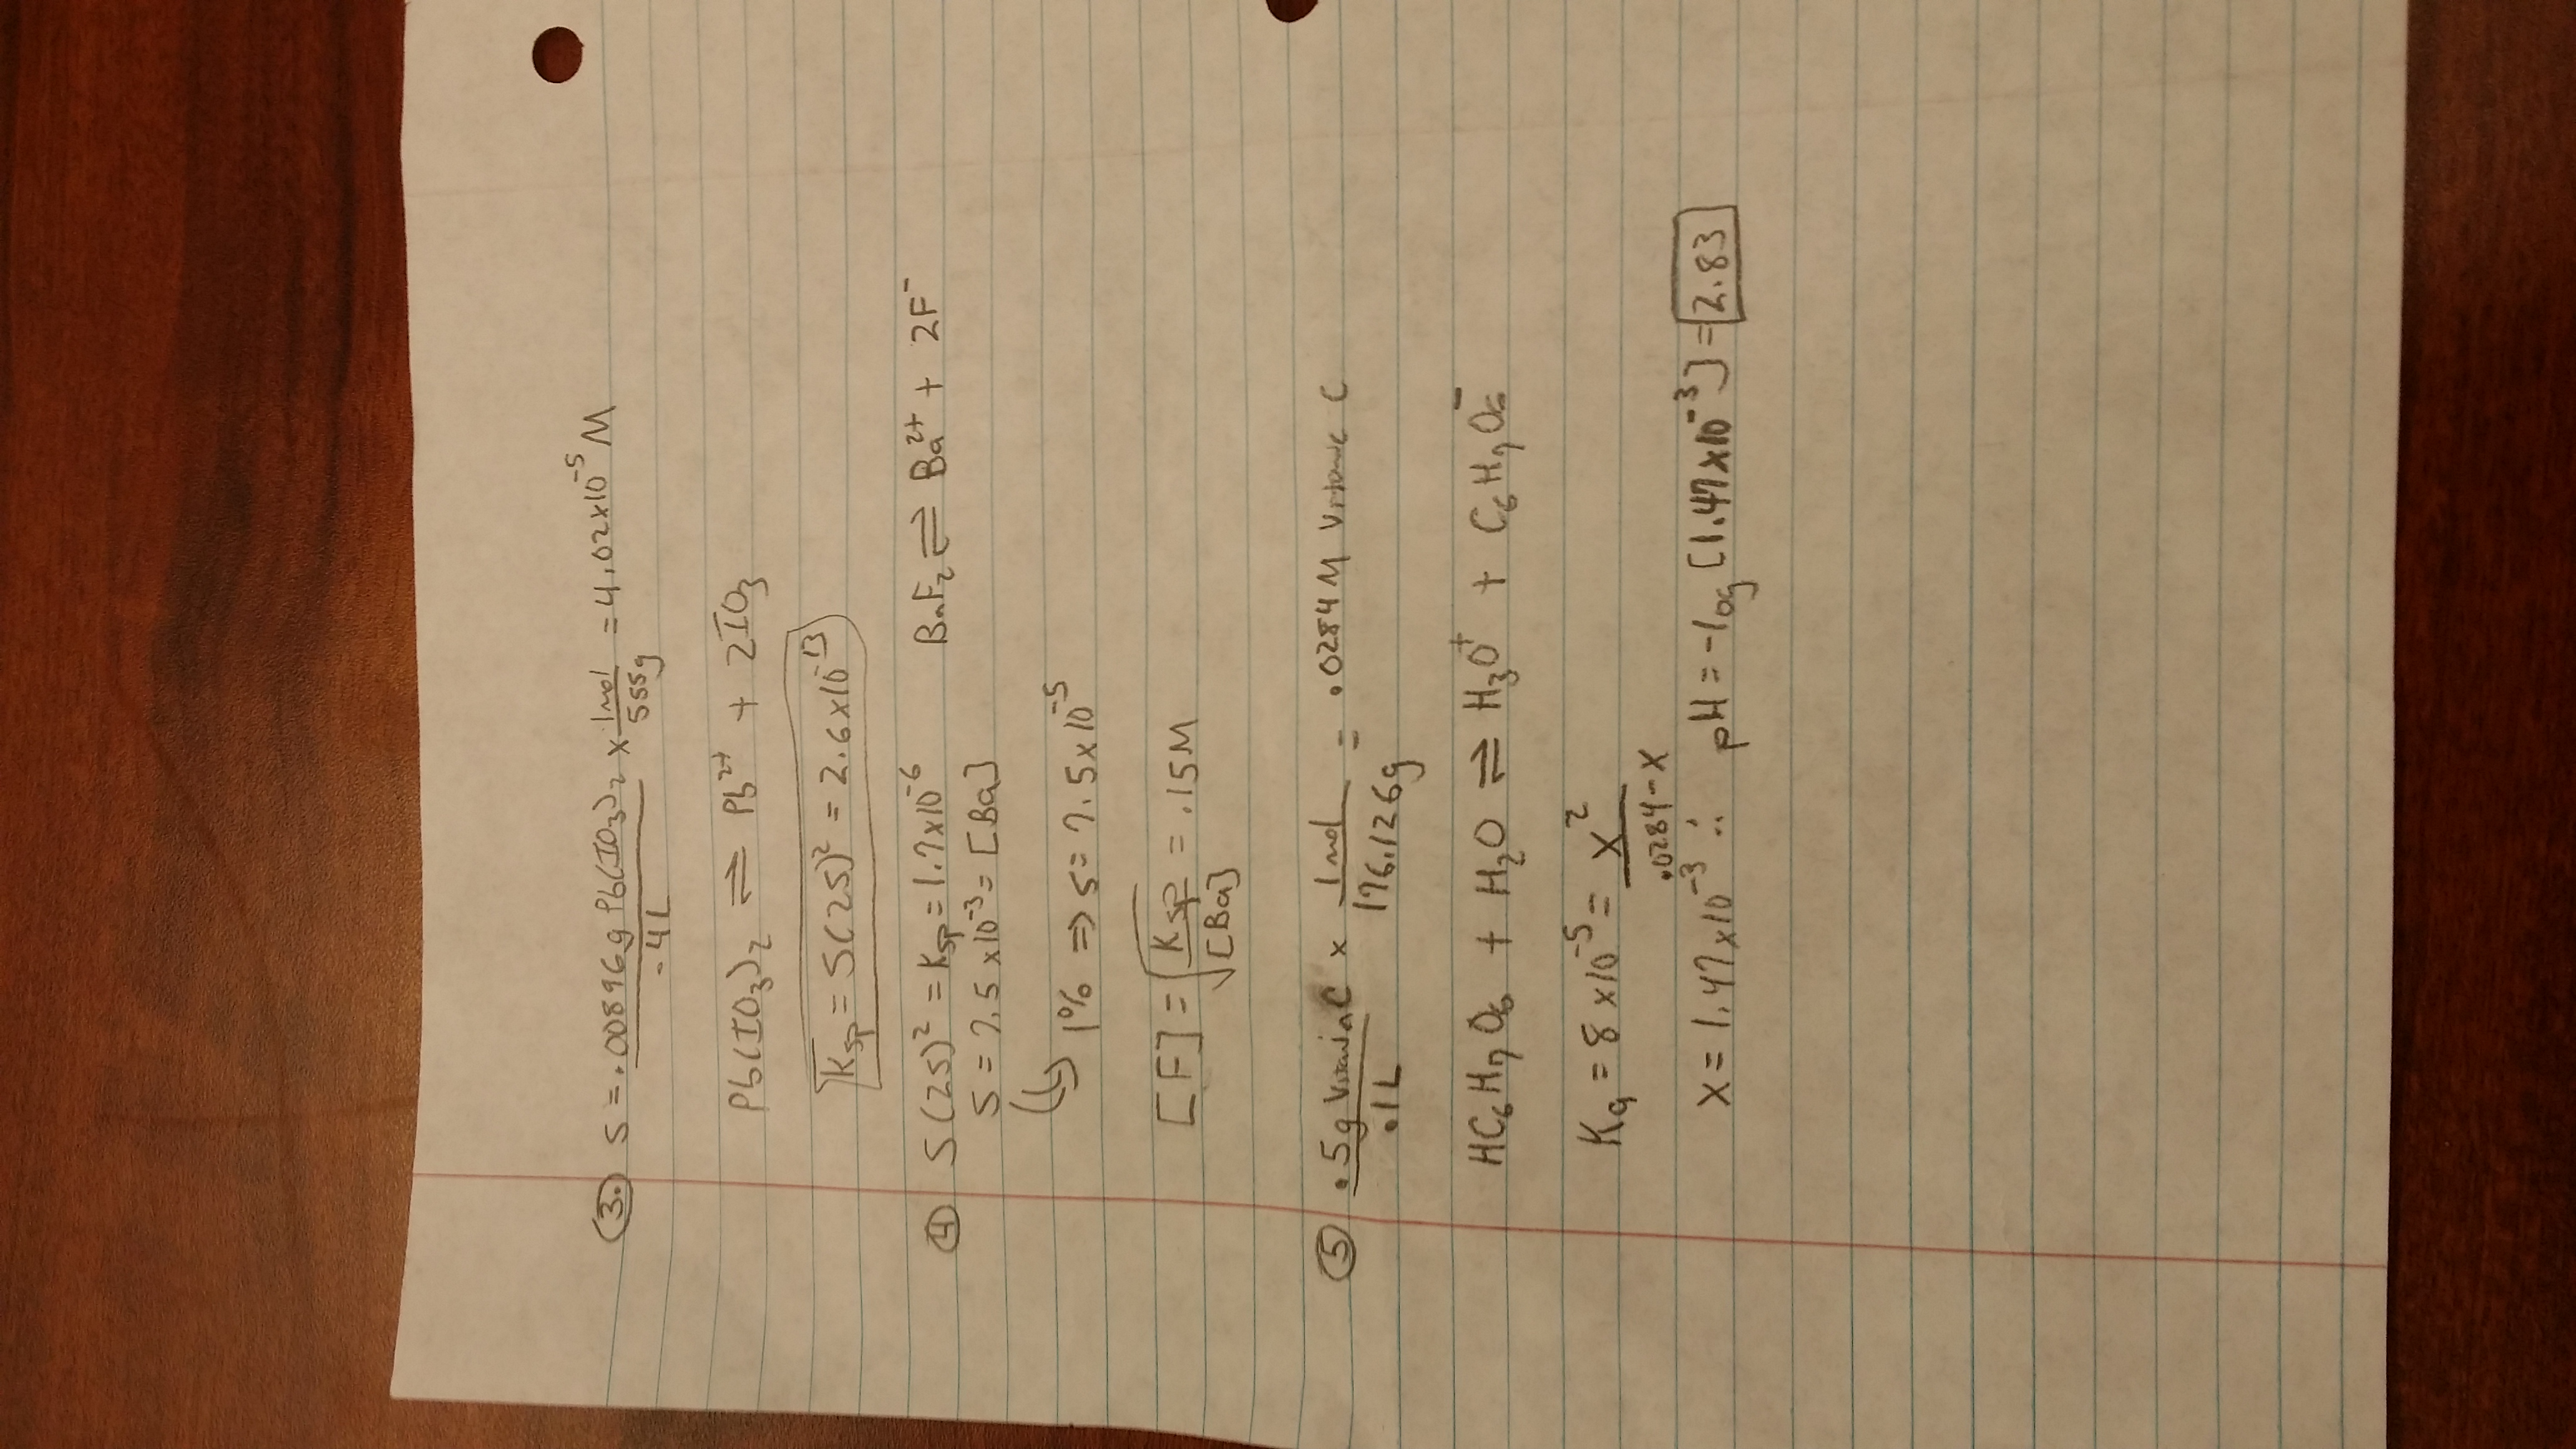 3. S = .00896g Pb(IO3)2 / .4L x 1mol / 555g = 4.02x10^-5 M
Pb(IO3)2 ⇌ Pb^2+ + 2IO3
Ksp = S(2S)^2 = 2.6x10^-13
4 S(2S)^2 = Ksp = 1.7x10^-6 BaF2 ⇌ Ba^2+ + 2F^-
S = 7.5x10^-3 = [Ba]
1% ⇒ S = 7.5x10^-5
[F] = √(Ksp / [Ba]) = .15M
5 .5g Vitamin C / .1L x 1mol / 176.126g = .0284M Vitamin C
HC6H7O6 + H2O ⇌ H3O^+ + C6H7O6^-
Ka = 8x10^-5 = x^2 / .0284-x
x = 1.47x10^-3 ∴ pH = -log[1.47x10^-3] = 2.83